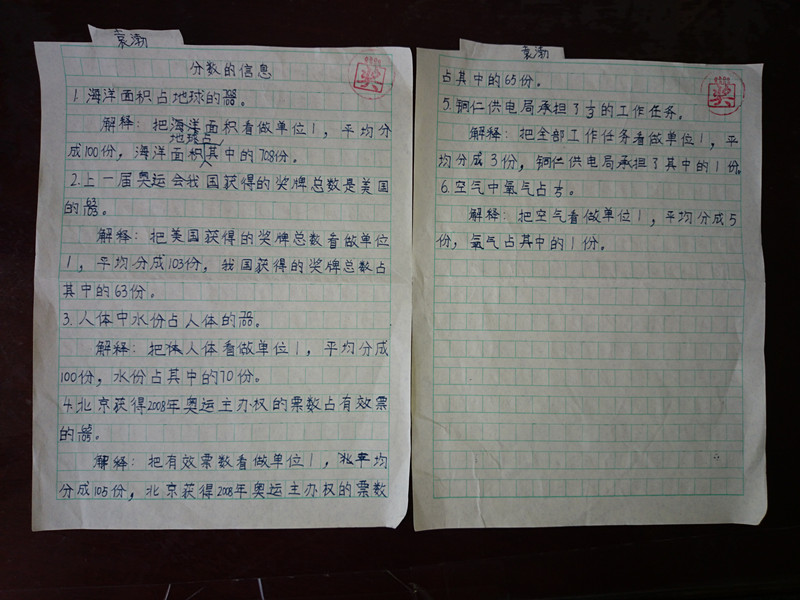 袁渤
分数的信息
1.海洋面积占地球的。
解释：把海洋面积看做单位1，平均分
地球占
成100份，海洋面积其中的708份。
2.上一届奥运会我国获得的奖牌总数是美国
的。
解释：把美国获得的奖牌总数看做单位
1，平均分成103份，我国获得的奖牌总数占
其中的63份。
3.人体中水份占人体的。
解释：把体人体看做单位1，平均分成
100份，水份占其中的70份。
4.北京获得2008年奥运主办权的票数占有效票
的。
解释：把有效票数看做单位1，平均
分成105份，北京获得2008年奥运主办权的票数
奖
袁渤
占其中的65份。
5.铜仁供电局承担了1/3的工作任务。
解释：把全部工作任务看做单位1，平
均分成3份，铜仁供电局承担了其中的1份。
6.空气中氧气占1/5。
解释：把空气看做单位1，平均分成5
份，氧气占其中的1份。
奖